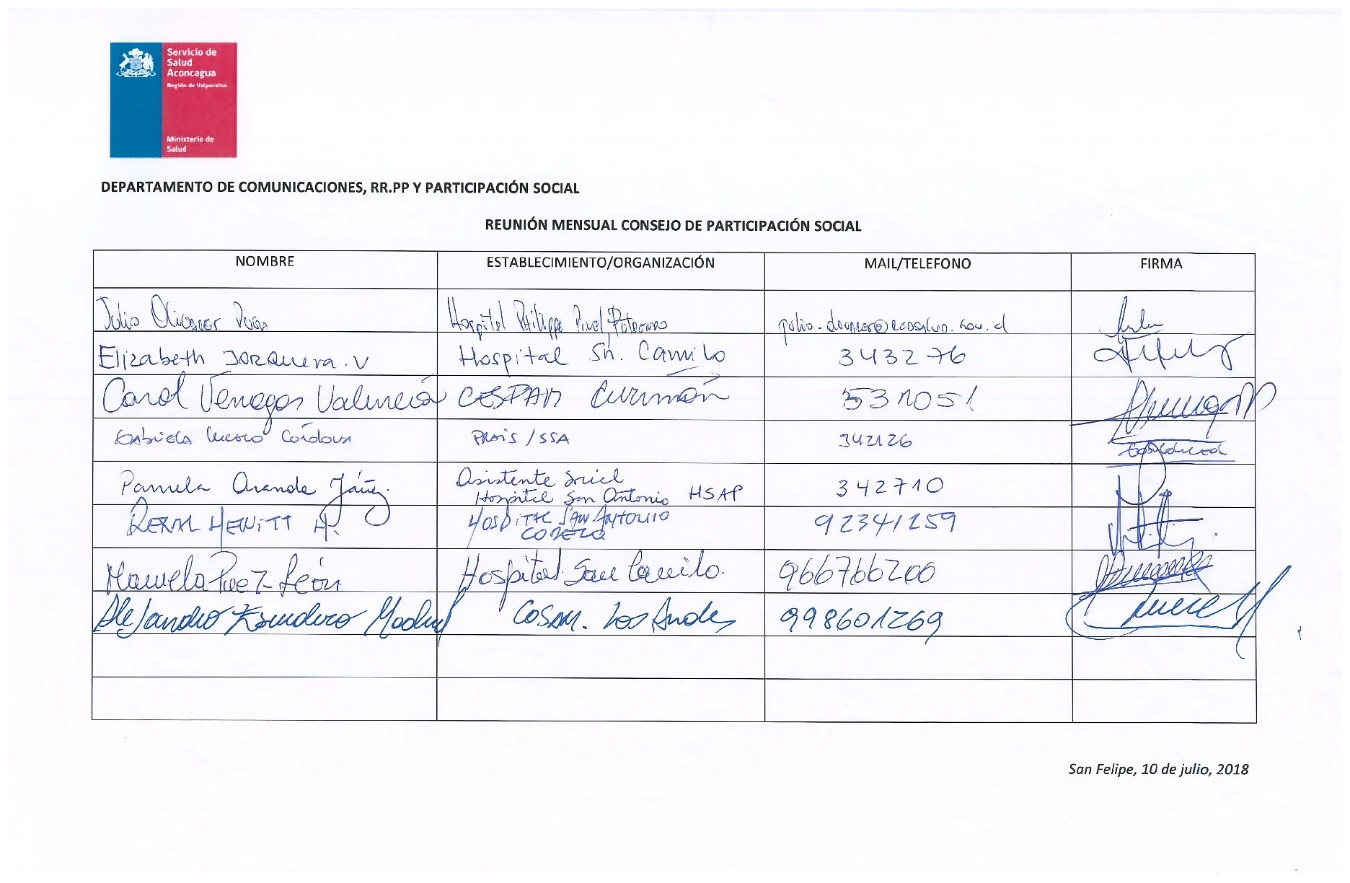 Servicio de
Salud
Aconcagua
Región de Valparaíso
Ministerio de
Salud
DEPARTAMENTO DE COMUNICACIONES, RR.PP Y PARTICIPACIÓN SOCIAL
REUNIÓN MENSUAL CONSEJO DE PARTICIPACIÓN SOCIAL
NOMBRE ESTABLECIMIENTO/ORGANIZACIÓN MAIL/TELEFONO FIRMA
Julio Hospital Philippe Pinel Putaendo
Elizabeth Jorquera. V Hospital Sn. Camilo 343276
Carol Venegas Valencia CESFAM Curimón 531051
Gabriela Córdova PRAIS/SSA 342126
Pamela Aranda Yáñez. Asistente
Hospital San Antonio HSAP 342710
HEWITT A. HOSPITAL SAN ANTONIO 92341259
Manuela Paez León Hospital San Camilo. 966766200
Alejandro Escudero COSAM. Los Andes 998601269
San Felipe, 10 de julio, 2018